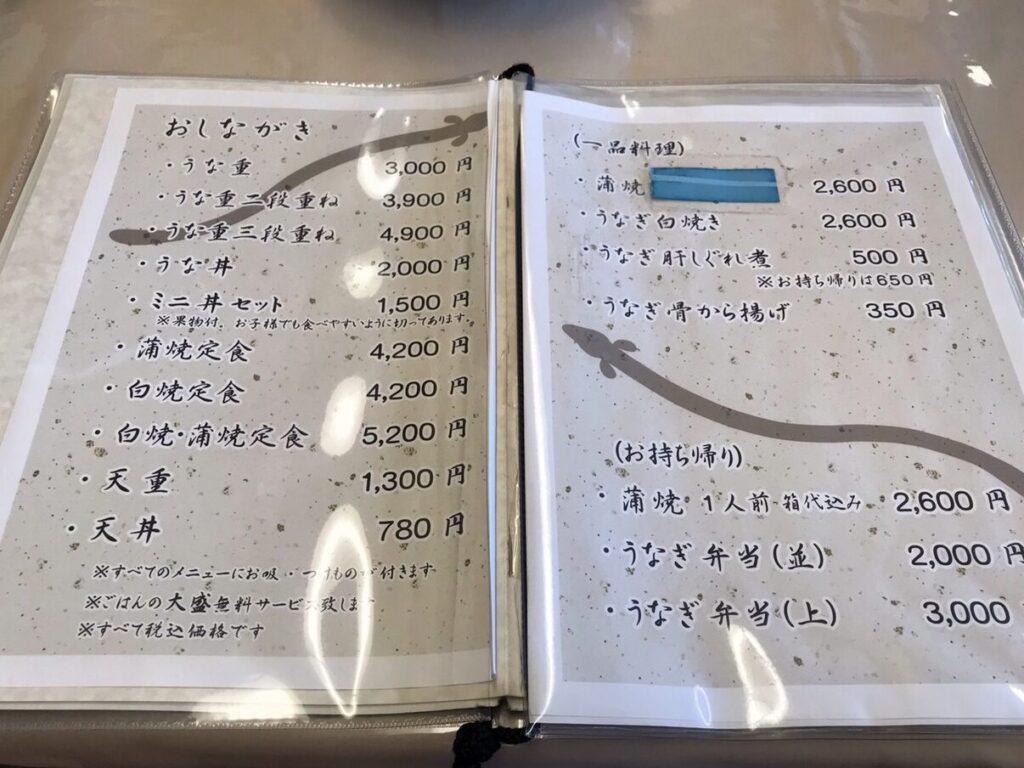 おしながき
・うな重 3,000 円
・うな重二段重ね 3,900 円
・うな重三段重ね 4,900 円
・うな丼 2,000 円
・ミニ丼セット 1,500 円
※果物付、お子様でも食べやすいように切ってあります。
・蒲焼定食 4,200 円
・白焼定食 4,200 円
・白焼・蒲焼定食 5,200 円
・天重 1,300 円
・天丼 780 円
※すべてのメニューにお吸・つけものが付きます
※ごはんの大盛無料サービス致します
※すべて税込価格です
(一品料理)
・蒲焼 2,600 円
・うなぎ白焼き 2,600 円
・うなぎ肝しぐれ煮 500 円
※お持ち帰りは650円
・うなぎ骨から揚げ 350 円
(お持ち帰り)
・蒲焼 1人前 箱代込み 2,600 円
・うなぎ弁当(並) 2,000 円
・うなぎ弁当(上) 3,000